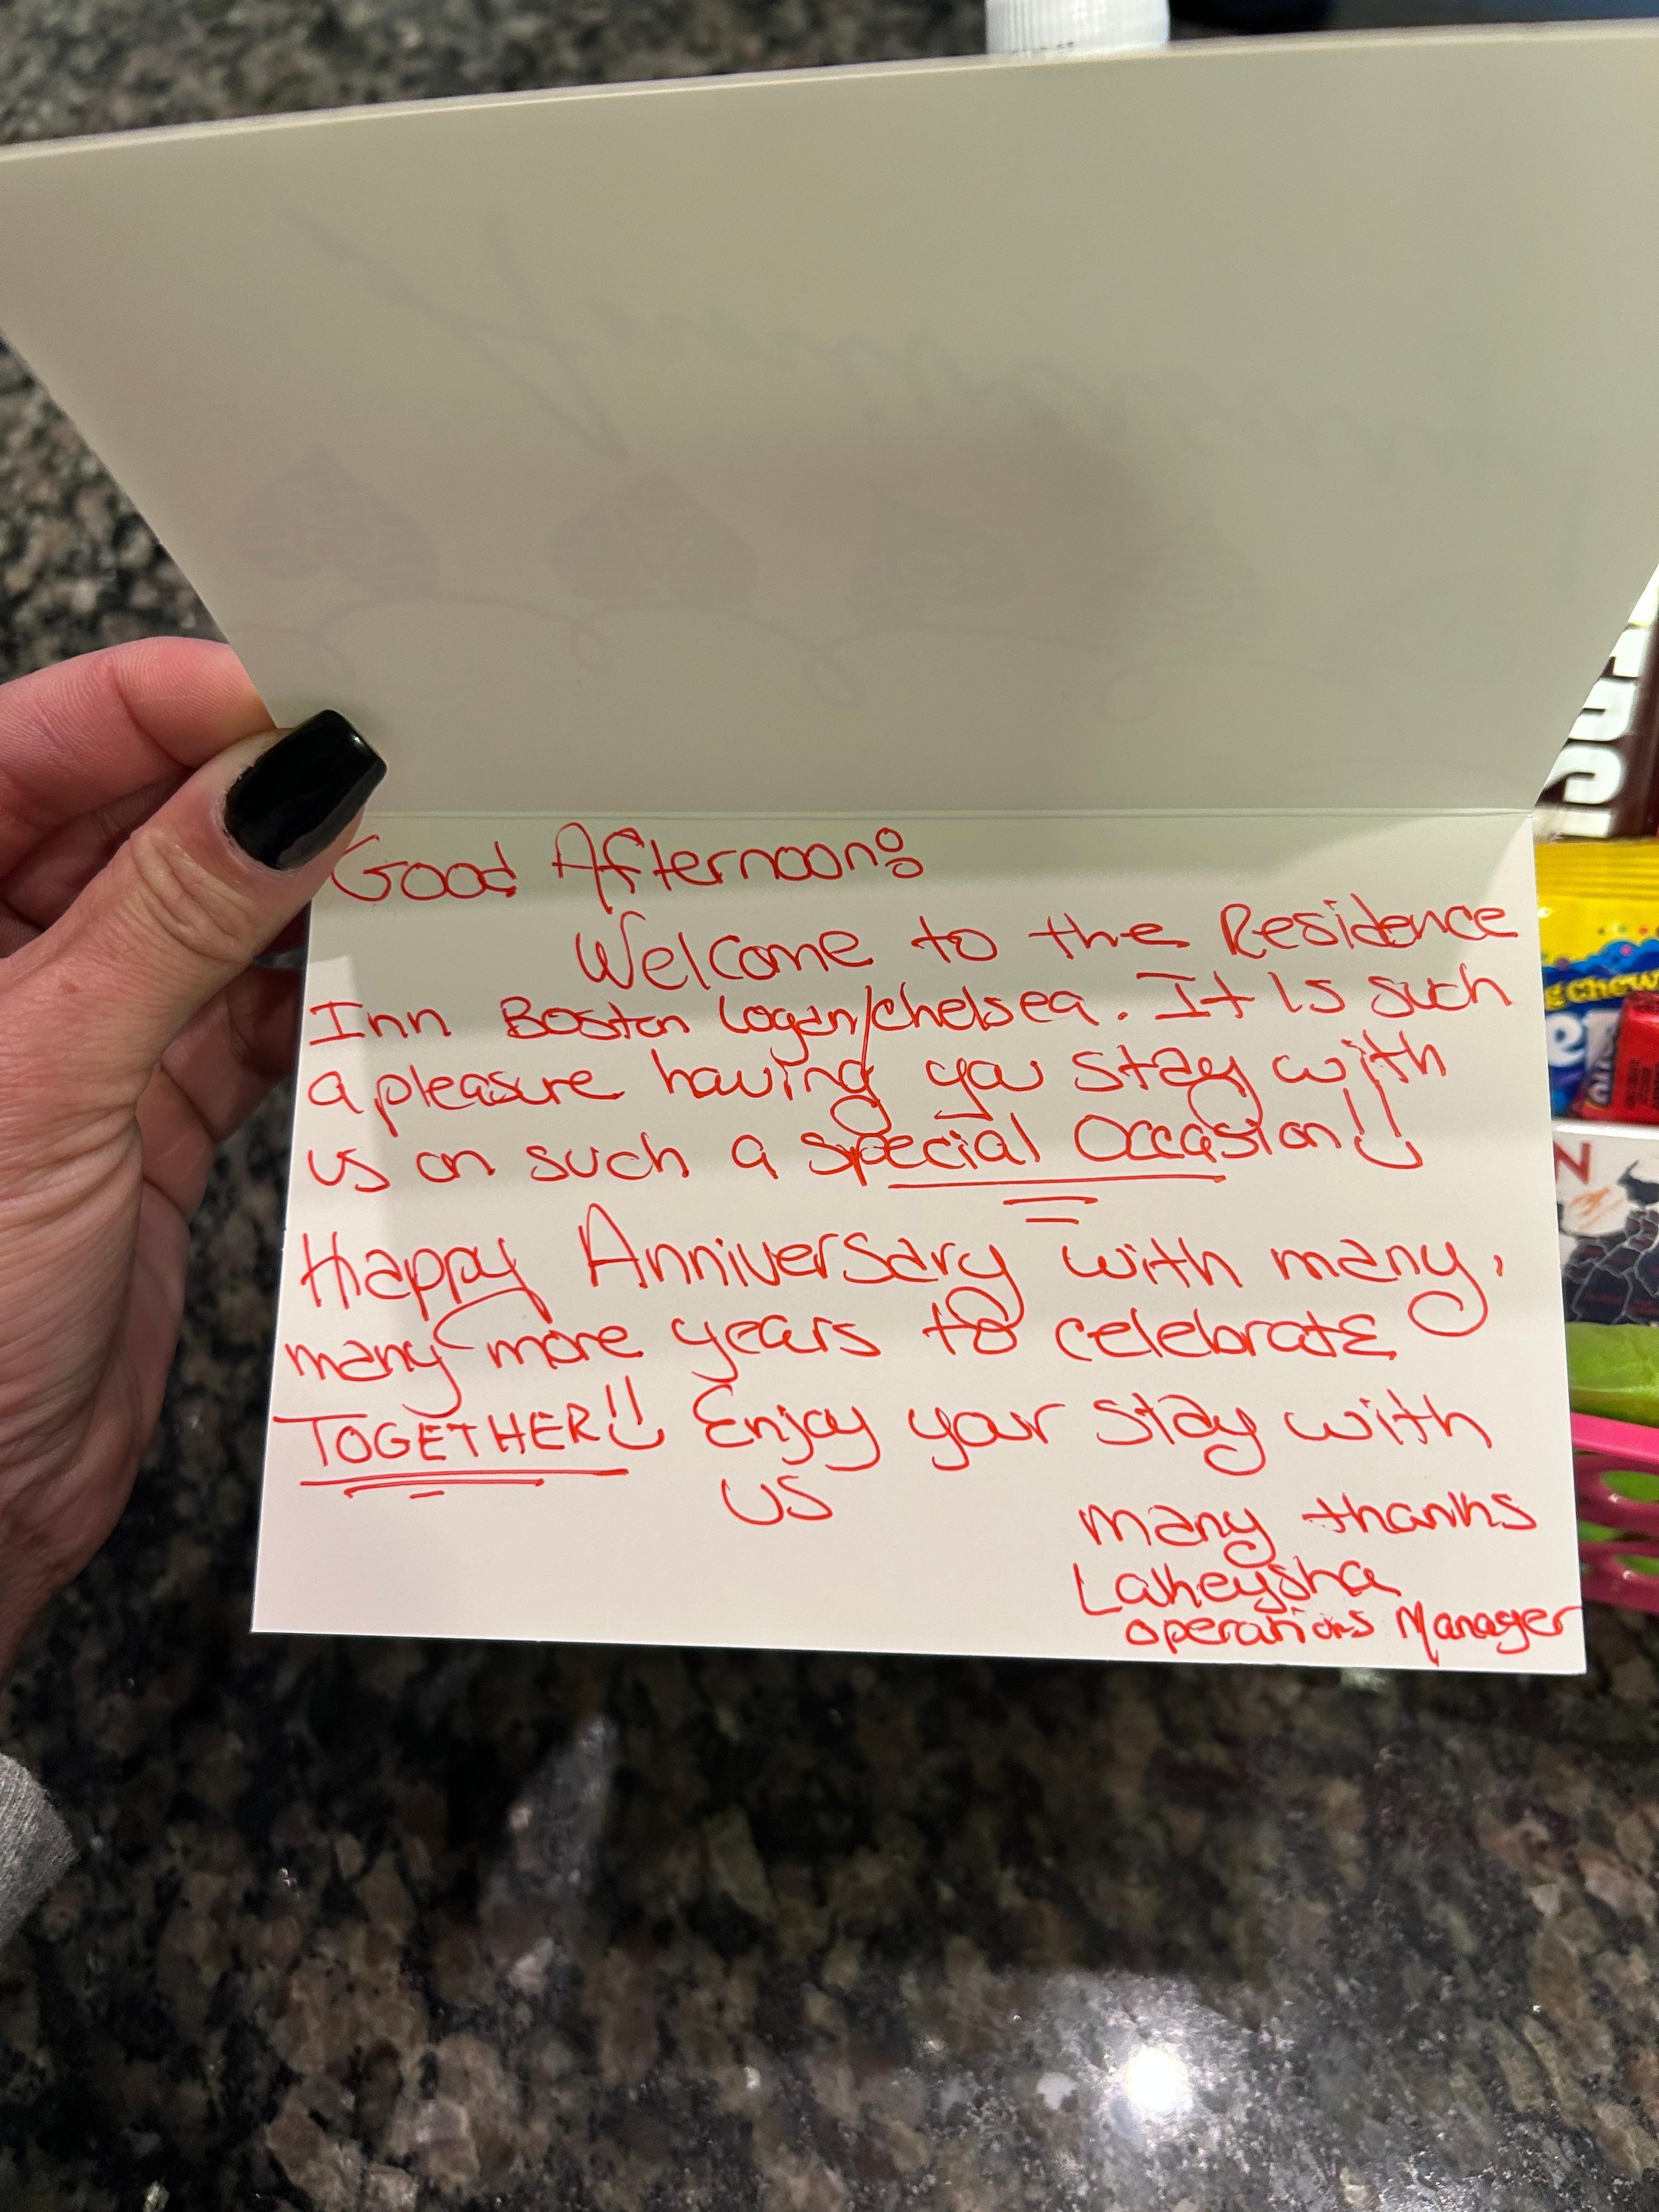 Good Afternoon:
Welcome to the Residence
Inn Boston Logan/Chelsea. It is such
a pleasure having you stay with
us on such a special Occassion!!
Happy Anniversary with many,
many more years to celebrate
TOGETHER!! Enjoy your stay with
us
many thanks
Lakeysha
Operations Manager
Chew
N